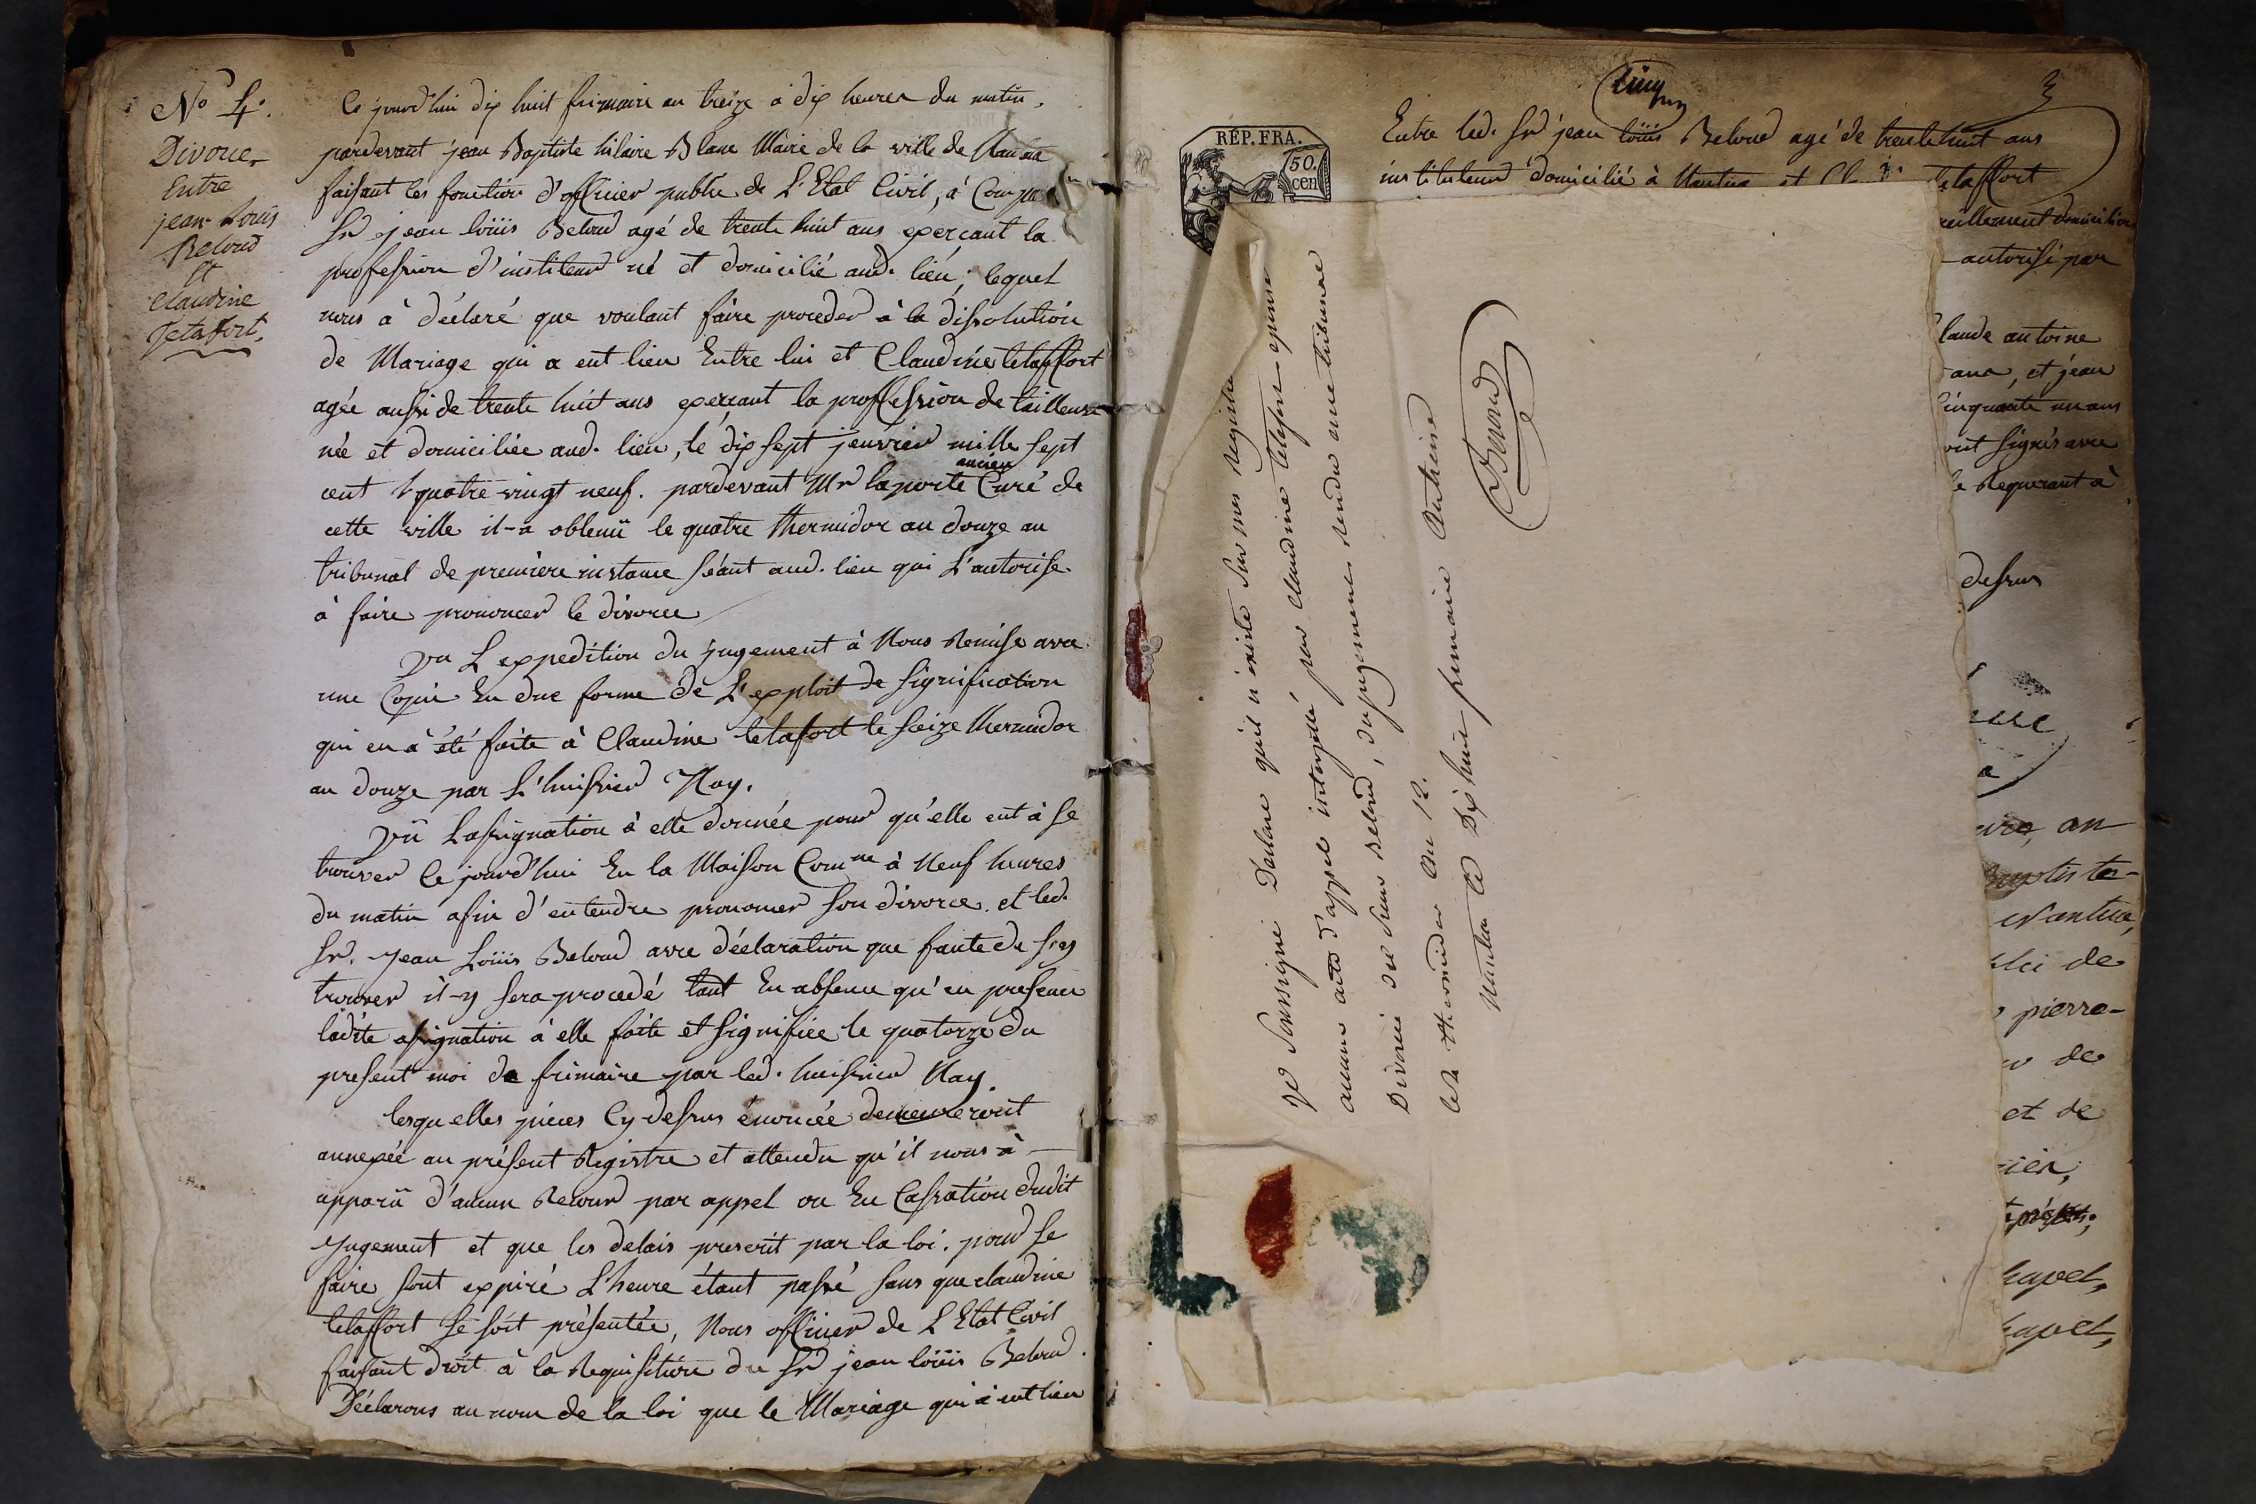 No 4.
Divorce
Entre
jean Louis
Beloud
et
Claudine
Jetafort.
Ce jourd'hui dix huit frimaire an treize à dix heures du matin,
pardevant jean Baptiste hilaire Blanc Maire de la ville de Nantua
faisant les fonction d'officier public de L'Etat Civil, à Compa
Sr jean loüis Beloud agé de trente huit ans exerçant la
profession d'instituteur né et domicilié aud. lieu, lequel
nous à déclaré que voulant faire proceder à la dissolution
de Mariage qui a eut lieu Entre lui et Claudine letaffort
agée aussi de trente huit ans exercant la proffession de tailleuse
née et domiciliée aud. lieu, le dix sept jeanvier mille sept
cent quatre vingt neuf. pardevant Mr laporte ancien Curé de
cette ville il-a obtenü le quatre thermidor an douze au
tribunal de première instance séant aud. lieu qui L'autorise
à faire prononcer le divorce
Vu L'expedition du jugement à Nous Remise avec
une Copie En due forme de L'exploit de signification
qui en à été faite à Claudine letafort le seize thermidor
an douze par L'huissier Nay.
Vü Lassignation à elle donnée pour qu'elle eut à se
trouver Ce jourd'hui En la Maison Comne à Neuf heures
du matin afin d'entendre prononcer son divorce. et led.
Sr. Jean Loüis Beloud avec déclaration que faute de s'y
trouver il-y sera procedé tant En absence qu'en presence
ladite assignation à elle faite et signifiée le quatorze du
present moi de frimaire par led. huissier Nay.
lesquelles pièces Cy dessus énoncée demeureront
annexée au présent Registre et attendu qu'il nous à
apparü d'aucun Recour par appel ou En Cassation dudit
Jugement et que les delais prescrit par la loi. pour se
faire sont expiré L'heure étant passé sans que claudine
letaffort se soit présentée, Nous officier de L'Etat Civil
faisant droit à la Requisition du Sr jean loüis Beloud.
Déclarons au nom de la loi que le Mariage qui à eut lieu
3
RÉP. FRA.
50.
cen
Entre led. Sr jean loüis Beloud agé de trente huit ans
instituteur domicilié à Nantua et letaffort
domicilié
autorisé par
laude antoine
et jean
Cinquante un ans
signés avec
le Requerant à
dessus
an
Nantua,
de
pierre
de
et de
Je Soussigné Déclare qu'il n'existe sur mes registre
aucun acte d'appel interjetté par claudine letafort epouse
Divorcée du sieur Beloud, du jugement rendu au tribunal
le 4 thermidor an 12.
Nantua le Dix huit frimaire an treize